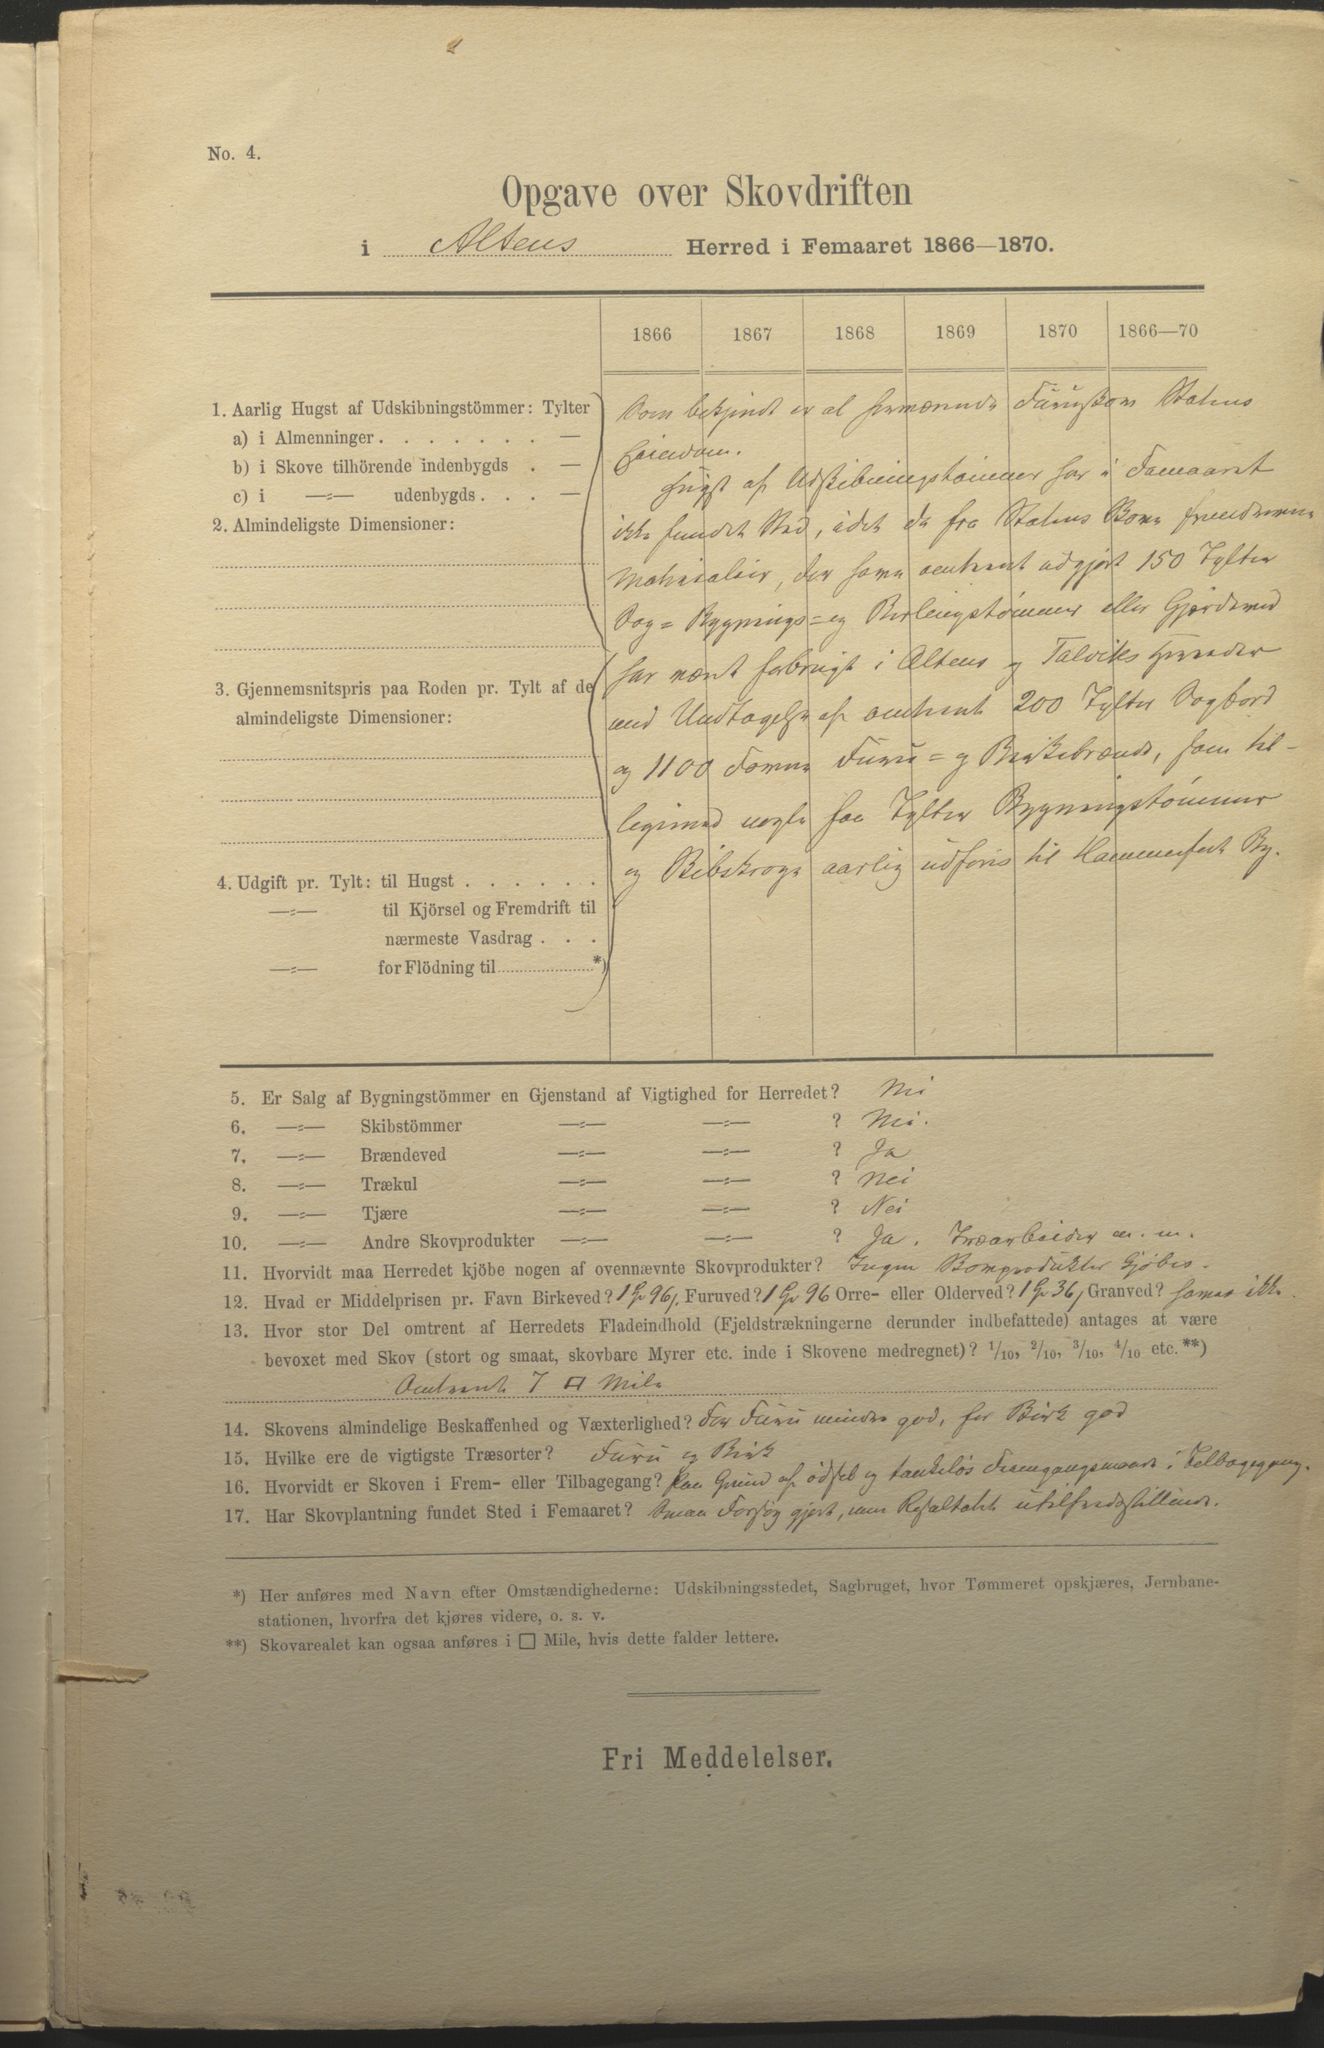 No. 4.
Opgave over Skovdriften
i Altens Herred i Femaaret 1866—1870.
1866 1867 1868 1869 1870 1866—70
1. Aarlig Hugst af Udskibningstömmer: Tylter
a) i Almenninger . . . . . . . —
b) i Skove tilhörende indenbygds . —
c) i —:— udenbygds . . . —
2. Almindeligste Dimensioner:
3. Gjennemsnitspris paa Roden pr. Tylt af de
almindeligste Dimensioner:
4. Udgift pr. Tylt: til Hugst . . . . . .
—:— til Kjörsel og Fremdrift til
nærmeste Vasdrag . . .
—:— for Flödning til *)
Som bekjendt er al herværende Furuskov Statens
Eiendom.
Hugst af Udskibningstømmer har i Femaaret
ikke fundet Sted, idet de fra Statens Skove
Materialier, der have omtrent udgjort 150 Tylter
Sag= Bygnings= og tømmer eller Gjerdeved
har været forbrugt i Altens og Talviks Herreder
med Undtagelse af omtrent 200 Tylter Sagbord
og 1100 Favne Furu= og Birkebrænde, som til-
ligemed nogle faa Tylter Bygningstømmer
og aarlig udføres til Hammerfest By.
5. Er Salg af Bygningstömmer en Gjenstand af Vigtighed for Herredet? Nei
6. —:— Skibstömmer —:— —:— ? Nei.
7. —:— Brændeved —:— —:— ? Ja
8. —:— Trækul —:— —:— ? Nei
9. —:— Tjære —:— —:— ? Nei
10. —:— Andre Skovprodukter —:— —:— ? Ja. Træarbeider m. m.
11. Hvorvidt maa Herredet kjöbe nogen af ovennævnte Skovprodukter? Ingen Skovprodukter kjöbes.
12. Hvad er Middelprisen pr. Favn Birkeved? 1 96 Furuved? 1 96 Orre- eller Olderved? 1 36 Granved? haves ikke.
13. Hvor stor Del omtrent af Herredets Fladeindhold (Fjeldstrækningerne derunder indbefattede) antages at være
bevoxet med Skov (stort og smaat, skovbare Myrer etc. inde i Skovene medregnet)? 1/10, 2/10, 3/10, 4/10 etc.**)
Omtrent 7 □ Mile
14. Skovens almindelige Beskaffenhed og Væxterlighed? For Furu mindre god, for Birk god
15. Hvilke ere de vigtigste Træsorter? Furu og Birk
16. Hvorvidt er Skoven i Frem- eller Tilbagegang? Paa Grund af ødsel og tankeløs Fremgangsmaade i Tilbagegang.
17. Har Skovplantning fundet Sted i Femaaret? Smaa Forsøg gjort, men Resultatet utilfredsstillende.
*) Her anføres med Navn efter Omstændighederne: Udskibningsstedet, Sagbruget, hvor Tømmeret opskjæres, Jernbane-
stationen, hvorfra det kjøres videre, o. s. v.
**) Skovarealet kan ogsaa anføres i □ Mile, hvis dette falder lettere.
Fri Meddelelser.